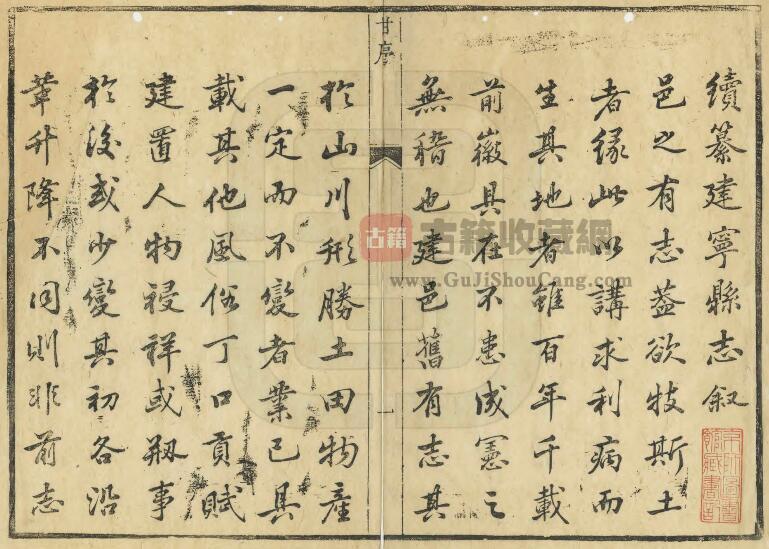 續纂建寧縣志叙
邑之有志蓋欲牧斯土
者緣此以講求利病而
生其地者雖百年千載
前徽具在不患成憲之
無稽也建邑舊有志其
甘序
一
於山川形勝土田物產
一定而不變者業已具
載其他風俗丁口貢賦
建置人物祲祥或剏事
於後或少變其初各沿
革升降不同則非前志
古籍
古籍收藏網
www.GuJiShouCang.com